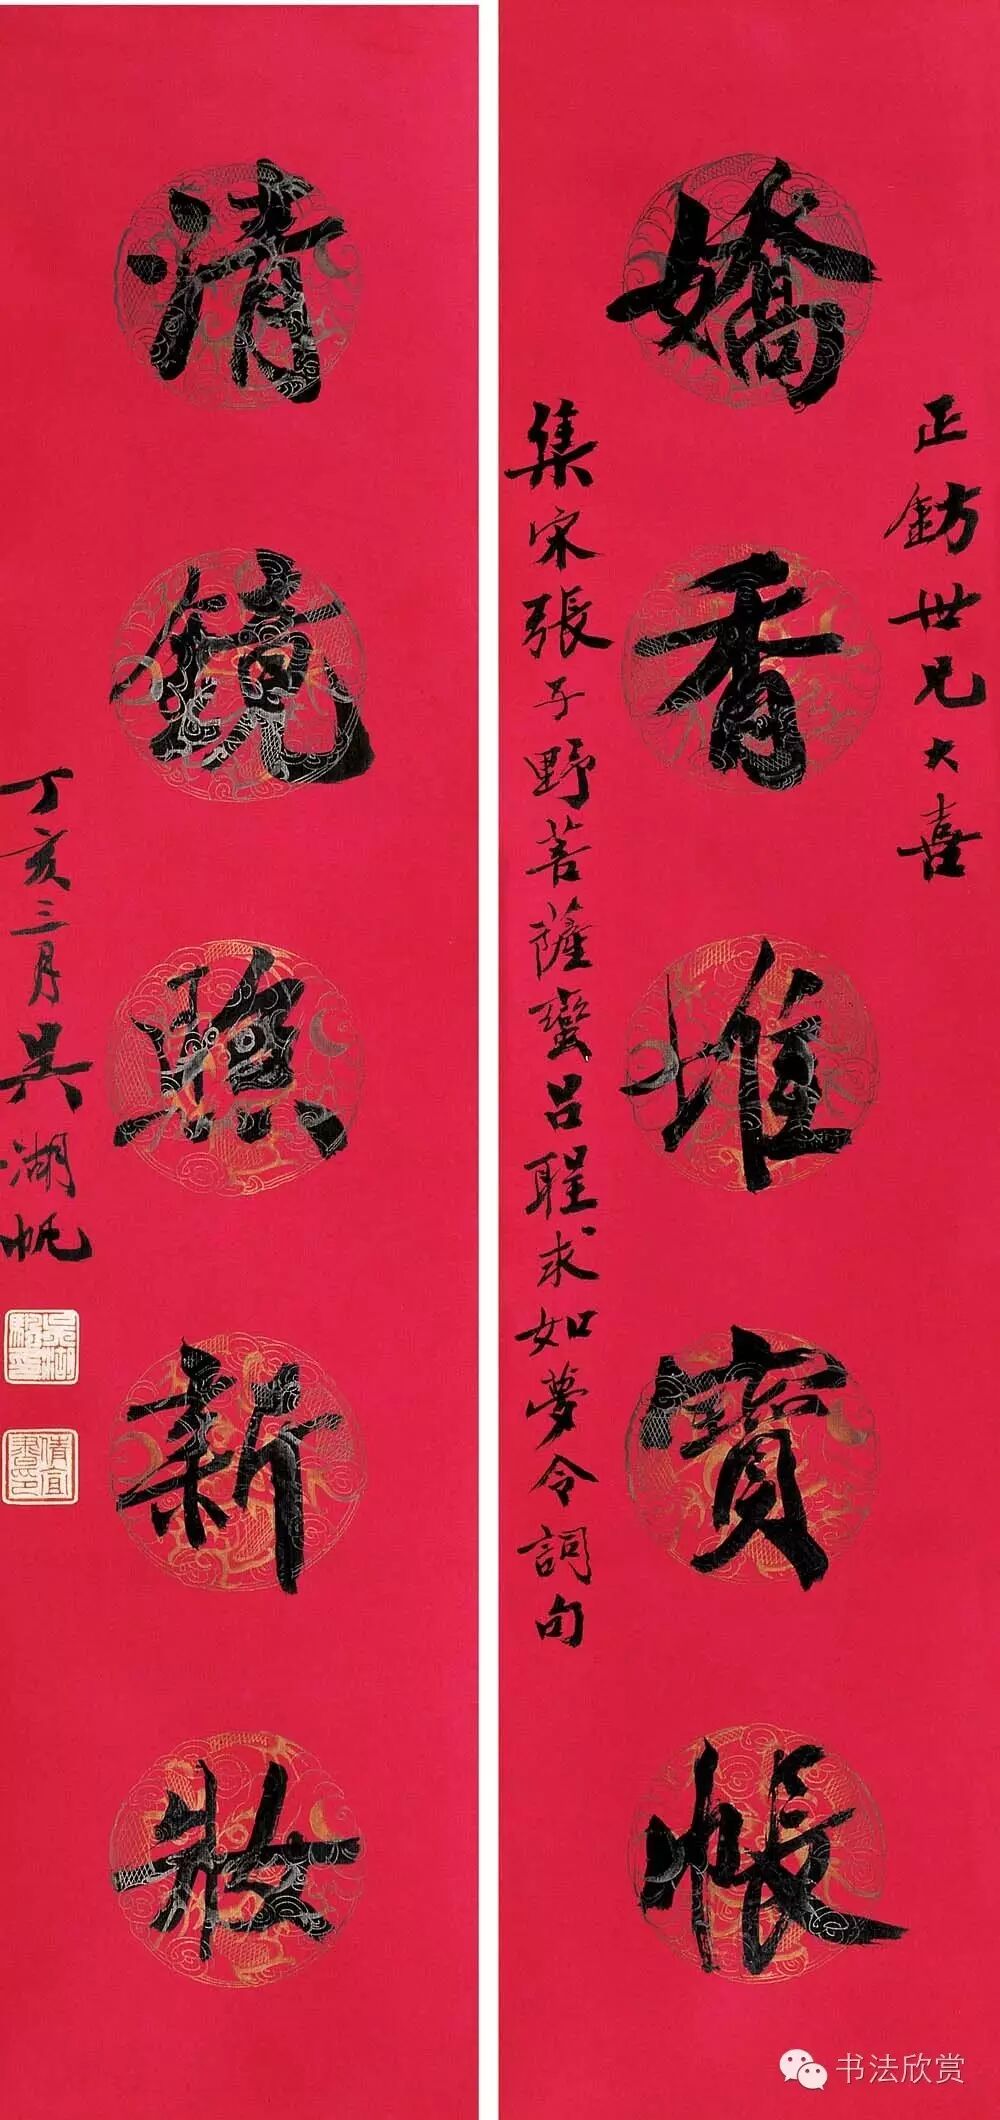 正鈁世兄大喜
嬌香堆寶帳
集宋張子野菩薩蠻呂聖求如夢令詞句
清鏡照新妝
丁亥三月吳湖帆
倩宜書印
书法欣赏